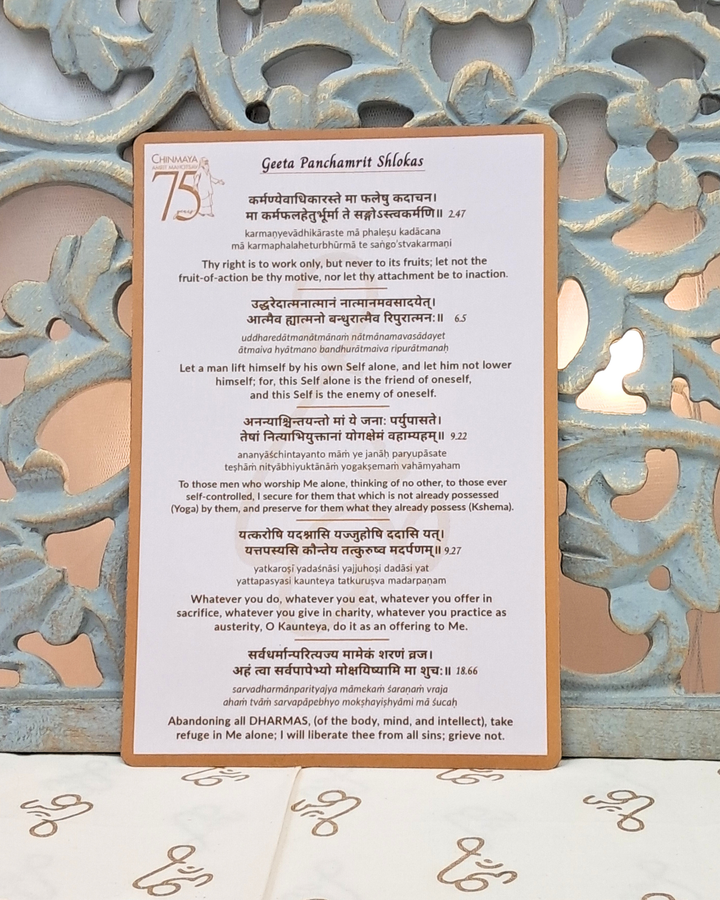 CHINMAYA
AMRIT MAHOTSAV
75
Geeta Panchamrit Shlokas
कर्मण्येवाधिकारस्ते मा फलेषु कदाचन।
मा कर्मफलहेतुर्भूर्मा ते सङ्गोऽस्त्वकर्मणि॥ 2.47
karmaṇyevādhikāraste mā phaleṣu kadācana
mā karmaphalaheturbhūrmā te saṅgo'stvakarmaṇi
Thy right is to work only, but never to its fruits; let not the
fruit-of-action be thy motive, nor let thy attachment be to inaction.
उद्धरेदात्मनात्मानं नात्मानमवसादयेत्।
आत्मैव ह्यात्मनो बन्धुरात्मैव रिपुरात्मन:॥ 6.5
uddharedātmanātmānaṁ nātmānamavasādayet
ātmaiva hyātmano bandhurātmaiva ripurātmanaḥ
Let a man lift himself by his own Self alone, and let him not lower
himself; for, this Self alone is the friend of oneself,
and this Self is the enemy of oneself.
अनन्याश्चिन्तयन्तो मां ये जनाः पर्युपासते।
तेषां नित्याभियुक्तानां योगक्षेमं वहाम्यहम्॥ 9.22
ananyāścintayanto māṁ ye janāḥ paryupāsate
teṣhāṁ nityābhiyuktānāṁ yogakṣemaṁ vahāmyaham
To those men who worship Me alone, thinking of no other, to those ever
self-controlled, I secure for them that which is not already possessed
(Yoga) by them, and preserve for them what they already possess (Kshema).
यत्करोषि यदश्नासि यज्जुहोषि ददासि यत्।
यत्तपस्यसि कौन्तेय तत्कुरुष्व मदर्पणम्॥ 9.27
yatkaroṣi yadaśnāsi yajjuhoṣi dadāsi yat
yattapasyasi kaunteya tatkuruṣva madarpaṇam
Whatever you do, whatever you eat, whatever you offer in
sacrifice, whatever you give in charity, whatever you practice as
austerity, O Kaunteya, do it as an offering to Me.
सर्वधर्मान्परित्यज्य मामेकं शरणं व्रज।
अहं त्वा सर्वपापेभ्यो मोक्षयिष्यामि मा शुच:॥ 18.66
sarvadharmānparityajya māmekaṁ śaraṇaṁ vraja
ahaṁ tvāṁ sarvapāpebhyo mokṣhayiṣhyāmi mā śucaḥ
Abandoning all DHARMAS, (of the body, mind, and intellect), take
refuge in Me alone; I will liberate thee from all sins; grieve not.